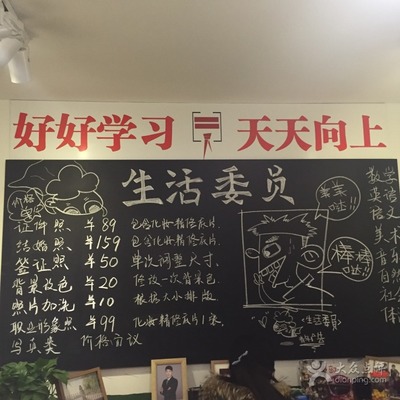 好好学习 天天向上
生活委员
价格
证件照 ¥89 包含化妆精修底片.
结婚照 ¥159 包含化妆精修底片.
签证照 ¥50 单次调整尺寸.
背景改色 ¥20 修改一次背景色
照片加洗 ¥10 根据大小排版
职业形象照 ¥99 化妆精修底片1张
写真类 价格面议
美美哒!!
棒棒哒!!
生活委员
数学
英语
语文
美术
音乐
自然
社会
体
大众点评
dianping.com